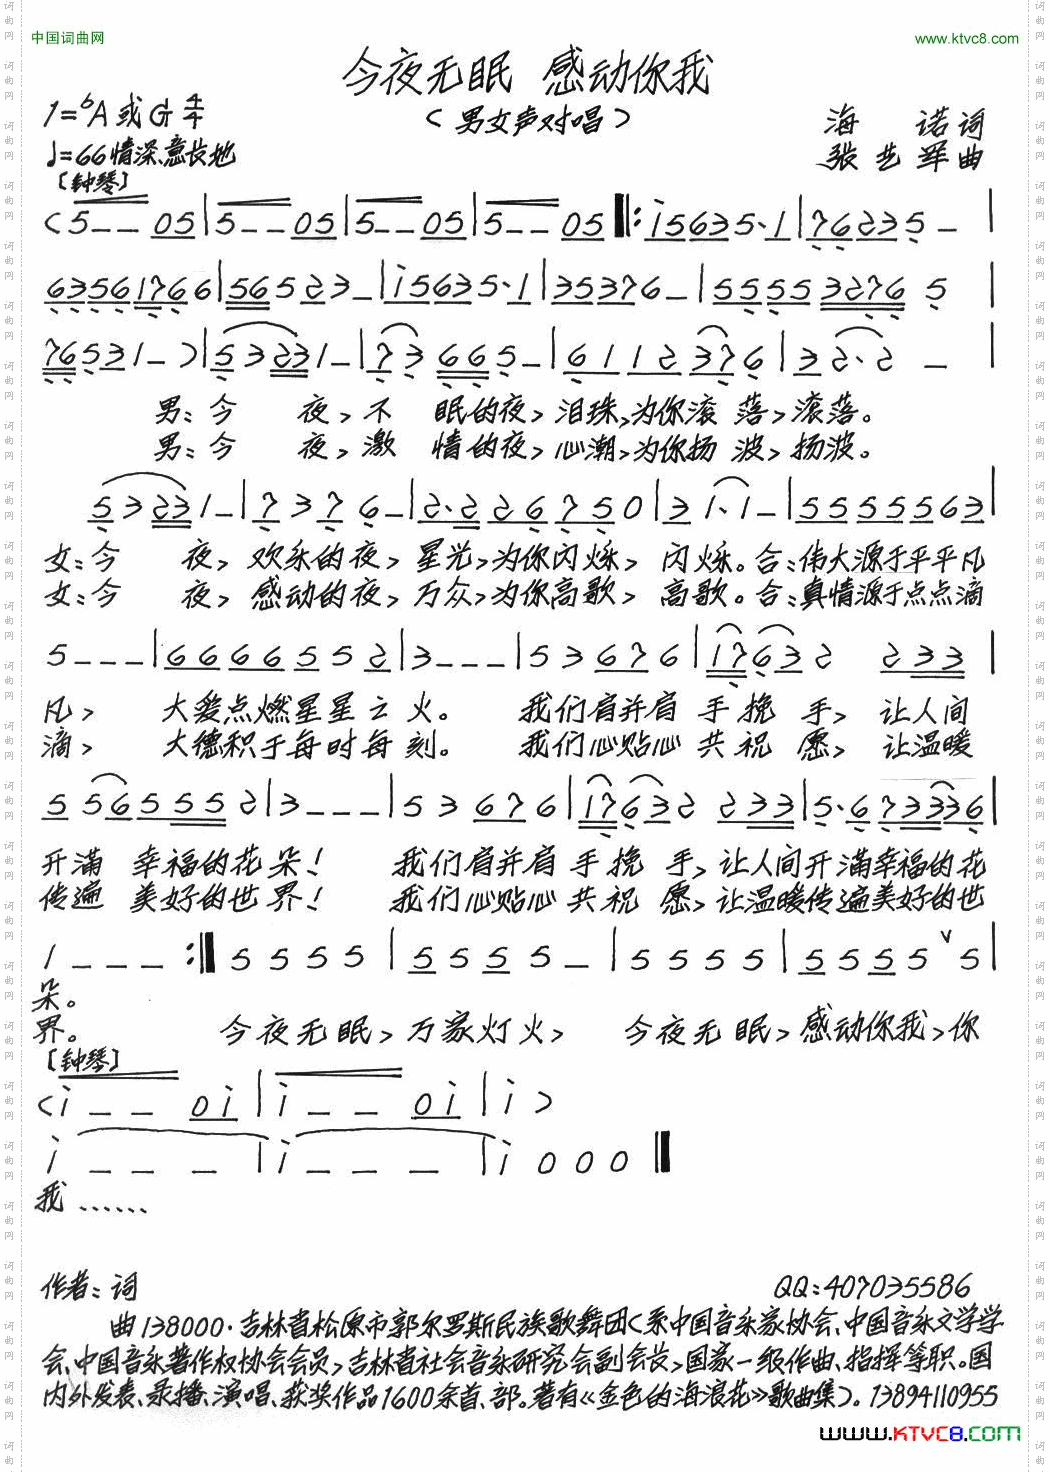 中国词曲网 www.ktvc8.com
今夜无眠 感动你我
1=ᵇA 或 G 4/4 (男女声对唱) 海 诺 词
♩=66 情深、意长地 张 艺 军 曲
[钟琴]
(5 - - 05|5 - - 05|5 - - 05|5 - - 05‖: i5635·1|76235 -|
63561766|565 23 -|i5635·1|35376 -|5555 3276 5|
76531 -)|53231 -|73 665 -|6112 376|32·2 -|
男:今 夜,不 眠的夜,泪珠,为你滚 落,滚落。
男:今 夜,激 情的夜,心潮,为你扬 波,扬波。
53231 -|7376 -|2·226750|31·1 -|5555563|
女:今 夜,欢乐的夜,星光,为你闪烁, 闪烁。合:伟大源于平平凡
女:今 夜,感动的夜,万众,为你高歌, 高歌。合:真情源于点点滴
5 - - -|6666552|3 - - -|53676|17632 233|
凡, 大爱点燃星星之火。 我们肩并肩 手挽 手, 让人间
滴, 大德积于每时每刻。 我们心贴心 共祝 愿, 让温暖
5565552|3 - - -|53676|17632 233|5·673336|
开满 幸福的花朵! 我们肩并肩 手挽 手,让人间开满幸福的花
传遍 美好的世界! 我们心贴心 共祝 愿,让温暖传遍美好的世
1 - - - :‖5555|5555 -|5555|5555ˇ5|
朵。
界。 今夜无眠,万家灯火, 今夜无眠,感动你我,你
[钟琴]
(i - - 0i|i - - 0i|i)
i - - -|i - - -|i000‖
我……
作者:词 QQ:407035586
曲138000·吉林省松原市郭尔罗斯民族歌舞团(系中国音乐家协会、中国音乐文学学
会、中国音乐著作权协会会员,吉林省社会音乐研究会副会长,国家一级作曲、指挥等职。国
内外发表、录播、演唱、获奖作品1600余首、部。著有《金色的海浪花》歌曲集)。13894110955
www.KTVC8.com